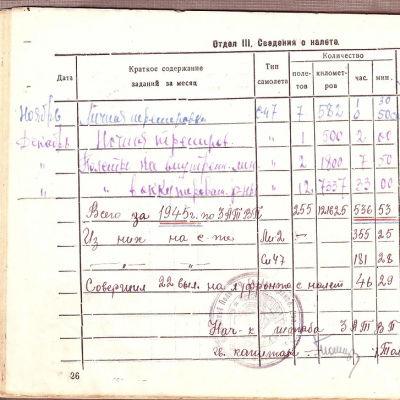 Отдел III. Сведения о налете.
Дата Краткое содержание заданий за месяц Тип самолета Количество полетов километр. час. мин.
Ноябрь Личная тренировка Си47 7 582 1 30
Декабрь Ночная трениров. " 1 500 2 00
" Полеты на внутрен. лин. " 2 1800 7 50
" " в оккупирован. р-ны " 12 7357 33 00
Всего за 1945г. по 3 АТВП 255 121625 536 53
Из них на с-те Ли2 — 355 25
" " Си47 181 28
Совершил 22 выл. на л/фронта с налет 46 29
Нач-к штаба 3 АТВП
гв. капитан
26